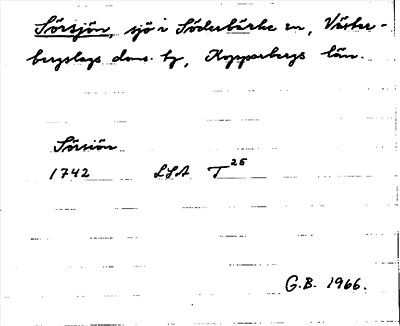 Sörsjön, sjö i Söderbärke sn, Väster-
bergslags doms. hg, Kopparbergs län.
Sörsiön
1742 LSA T 25
G.B. 1966.